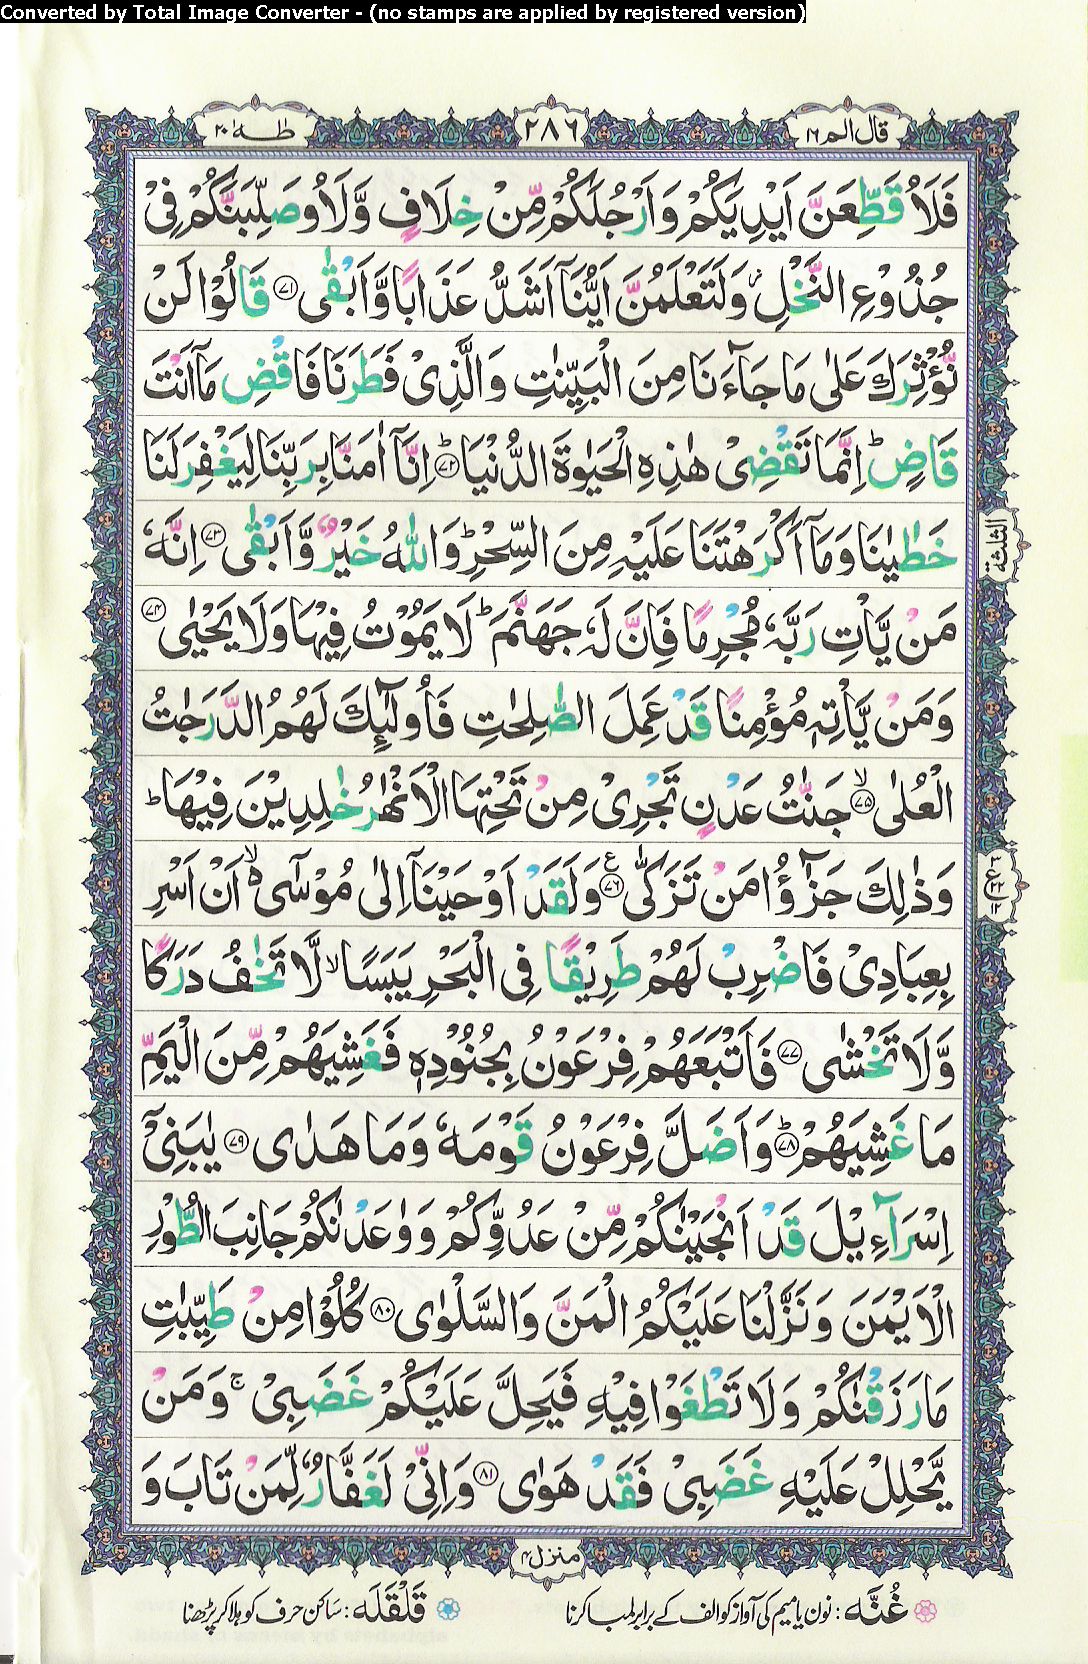 Converted by Total Image Converter - (no stamps are applied by registered version)
قال الم ١٦
٢٨٦
طٰهٰ ٢٠
فَلَاُ قَطِّعَنَّ اَيْدِيَكُمْ وَاَرْجُلَكُمْ مِّنْ خِلَافٍ وَّلَاُوصَلِّبَنَّكُمْ فِىْ
جُذُوْعِ النَّخْلِ ز وَلَتَعْلَمُنَّ اَيُّنَآ اَشَدُّ عَذَابًا وَّاَبْقٰى ﴿٧١﴾ قَالُوْا لَنْ
نُّؤْثِرَكَ عَلٰى مَا جَآءَنَا مِنَ الْبَيِّنٰتِ وَالَّذِىْ فَطَرَنَا فَاقْضِ مَآ اَنْتَ
قَاضٍ ؕ اِنَّمَا تَقْضِىْ هٰذِهِ الْحَيٰوةَ الدُّنْيَا ؕ ﴿٧٢﴾ اِنَّآ اٰمَنَّا بِرَبِّنَا لِيَغْفِرَ لَنَا
خَطٰيٰنَا وَمَآ اَكْرَهْتَنَا عَلَيْهِ مِنَ السِّحْرِ ؕ وَاللّٰهُ خَيْرٌ وَّاَبْقٰى ﴿٧٣﴾ اِنَّهٗ
الثلٰثة
مَنْ يَّاْتِ رَبَّهٗ مُجْرِمًا فَاِنَّ لَهٗ جَهَنَّمَ ؕ لَا يَمُوْتُ فِيْهَا وَلَا يَحْيٰى ﴿٧٤﴾
وَمَنْ يَّاْتِهٖ مُؤْمِنًا قَدْ عَمِلَ الصّٰلِحٰتِ فَاُولٰٓئِكَ لَهُمُ الدَّرَجٰتُ
الْعُلٰى ۙ ﴿٧٥﴾ جَنّٰتُ عَدْنٍ تَجْرِىْ مِنْ تَحْتِهَا الْاَنْهٰرُ خٰلِدِيْنَ فِيْهَا ؕ
وَذٰلِكَ جَزٰٓؤُا مَنْ تَزَكّٰى ﴿٧٦﴾ ع وَلَقَدْ اَوْحَيْنَآ اِلٰى مُوْسٰٓى ۙ ٥ اَنْ اَسْرِ
٣
ع ٢٢
١٢
بِعِبَادِىْ فَاضْرِبْ لَهُمْ طَرِيْقًا فِى الْبَحْرِ يَبَسًا ۙ لَّا تَخٰفُ دَرَكًا
وَّلَا تَخْشٰى ﴿٧٧﴾ فَاَتْبَعَهُمْ فِرْعَوْنُ بِجُنُوْدِهٖ فَغَشِيَهُمْ مِّنَ الْيَمِّ
مَا غَشِيَهُمْ ؕ ﴿٧٨﴾ وَاَضَلَّ فِرْعَوْنُ قَوْمَهٗ وَمَا هَدٰى ﴿٧٩﴾ يٰبَنِىْٓ
اِسْرَآءِيْلَ قَدْ اَنْجَيْنٰكُمْ مِّنْ عَدُوِّكُمْ وَوٰعَدْنٰكُمْ جَانِبَ الطُّوْرِ
الْاَيْمَنَ وَنَزَّلْنَا عَلَيْكُمُ الْمَنَّ وَالسَّلْوٰى ﴿٨٠﴾ كُلُوْا مِنْ طَيِّبٰتِ
مَا رَزَقْنٰكُمْ وَلَا تَطْغَوْا فِيْهِ فَيَحِلَّ عَلَيْكُمْ غَضَبِىْ ۚ وَمَنْ
يَّحْلِلْ عَلَيْهِ غَضَبِىْ فَقَدْ هَوٰى ﴿٨١﴾ وَاِنِّىْ لَغَفَّارٌ لِّمَنْ تَابَ وَ
منزل ٤
غُنَّه : نون یا میم کی آواز کو الف کے برابر لمبا کرنا
قَلْقَلَه : ساکن حرف کو ہلا کر پڑھنا